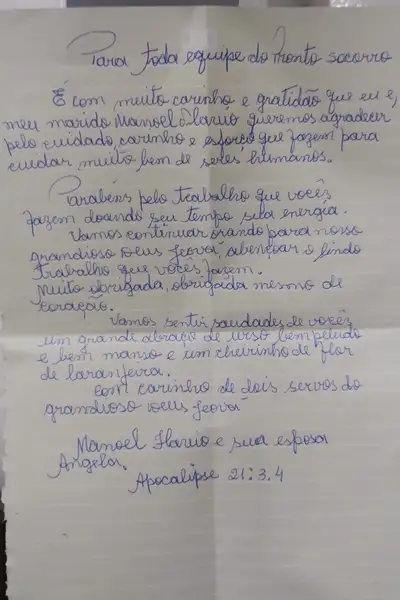 Para toda equipe do Pronto socorro
É com muito carinho e gratidão que eu e,
meu marido Manoel Flavio queremos agradecer
pelo cuidado, carinho e esforço que fazem para
cuidar muito bem de seres humanos.
Parabéns pelo trabalho que vocês
fazem doando seu tempo sua energia.
Vamos continuar orando para nosso
grandioso Deus Jeová, abençoar o lindo
trabalho que vocês fazem.
Muito obrigada, obrigada mesmo de
coração.
Vamos sentir saudades de vocês
um grande abraço de urso bem peludo
e bem manso e um cheirinho de flor
de laranjeira.
Com carinho de dois servos do
grandioso Deus Jeová
Manoel Flavio e sua esposa
Angela.
Apocalipse 21:3.4